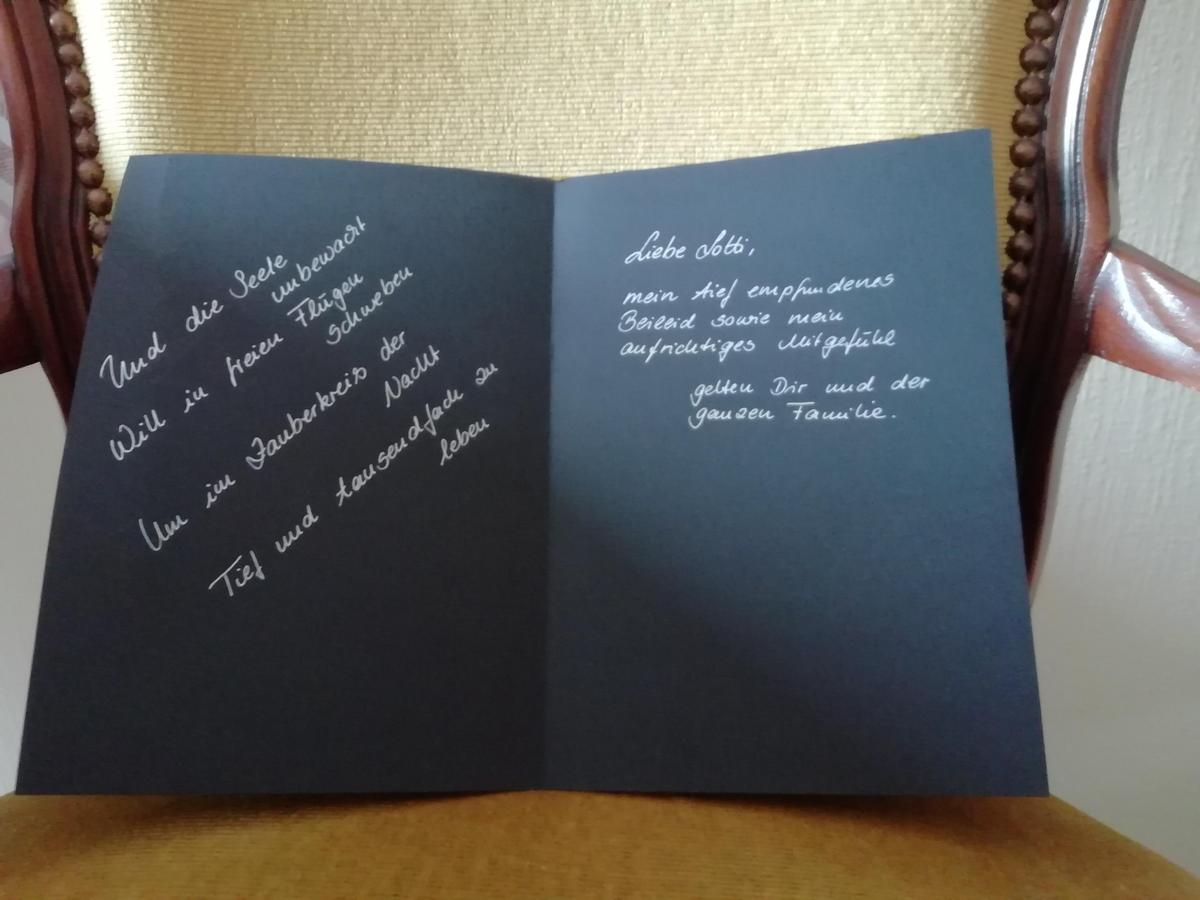 Und die Seele
unbewacht
Will in freien Flügen
schweben
Um im Zauberkreis der
Nacht
Tief und tausendfach zu
leben
Liebe Lotti,
mein tief empfundenes
Beileid sowie mein
aufrichtiges Mitgefühl
gelten Dir und der
ganzen Familie.